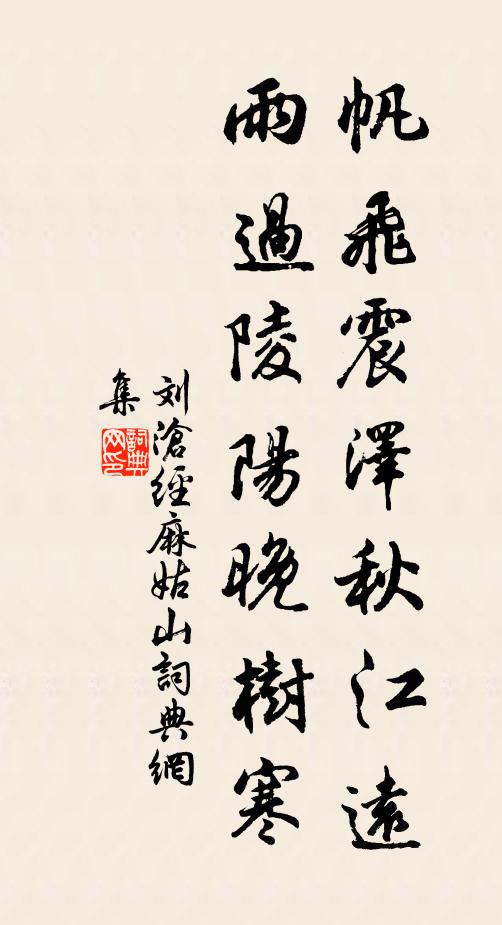 帆飛震澤秋江遠
雨過陵陽晚樹寒
刘滄經麻姑山詞典網
集
詞典
网印